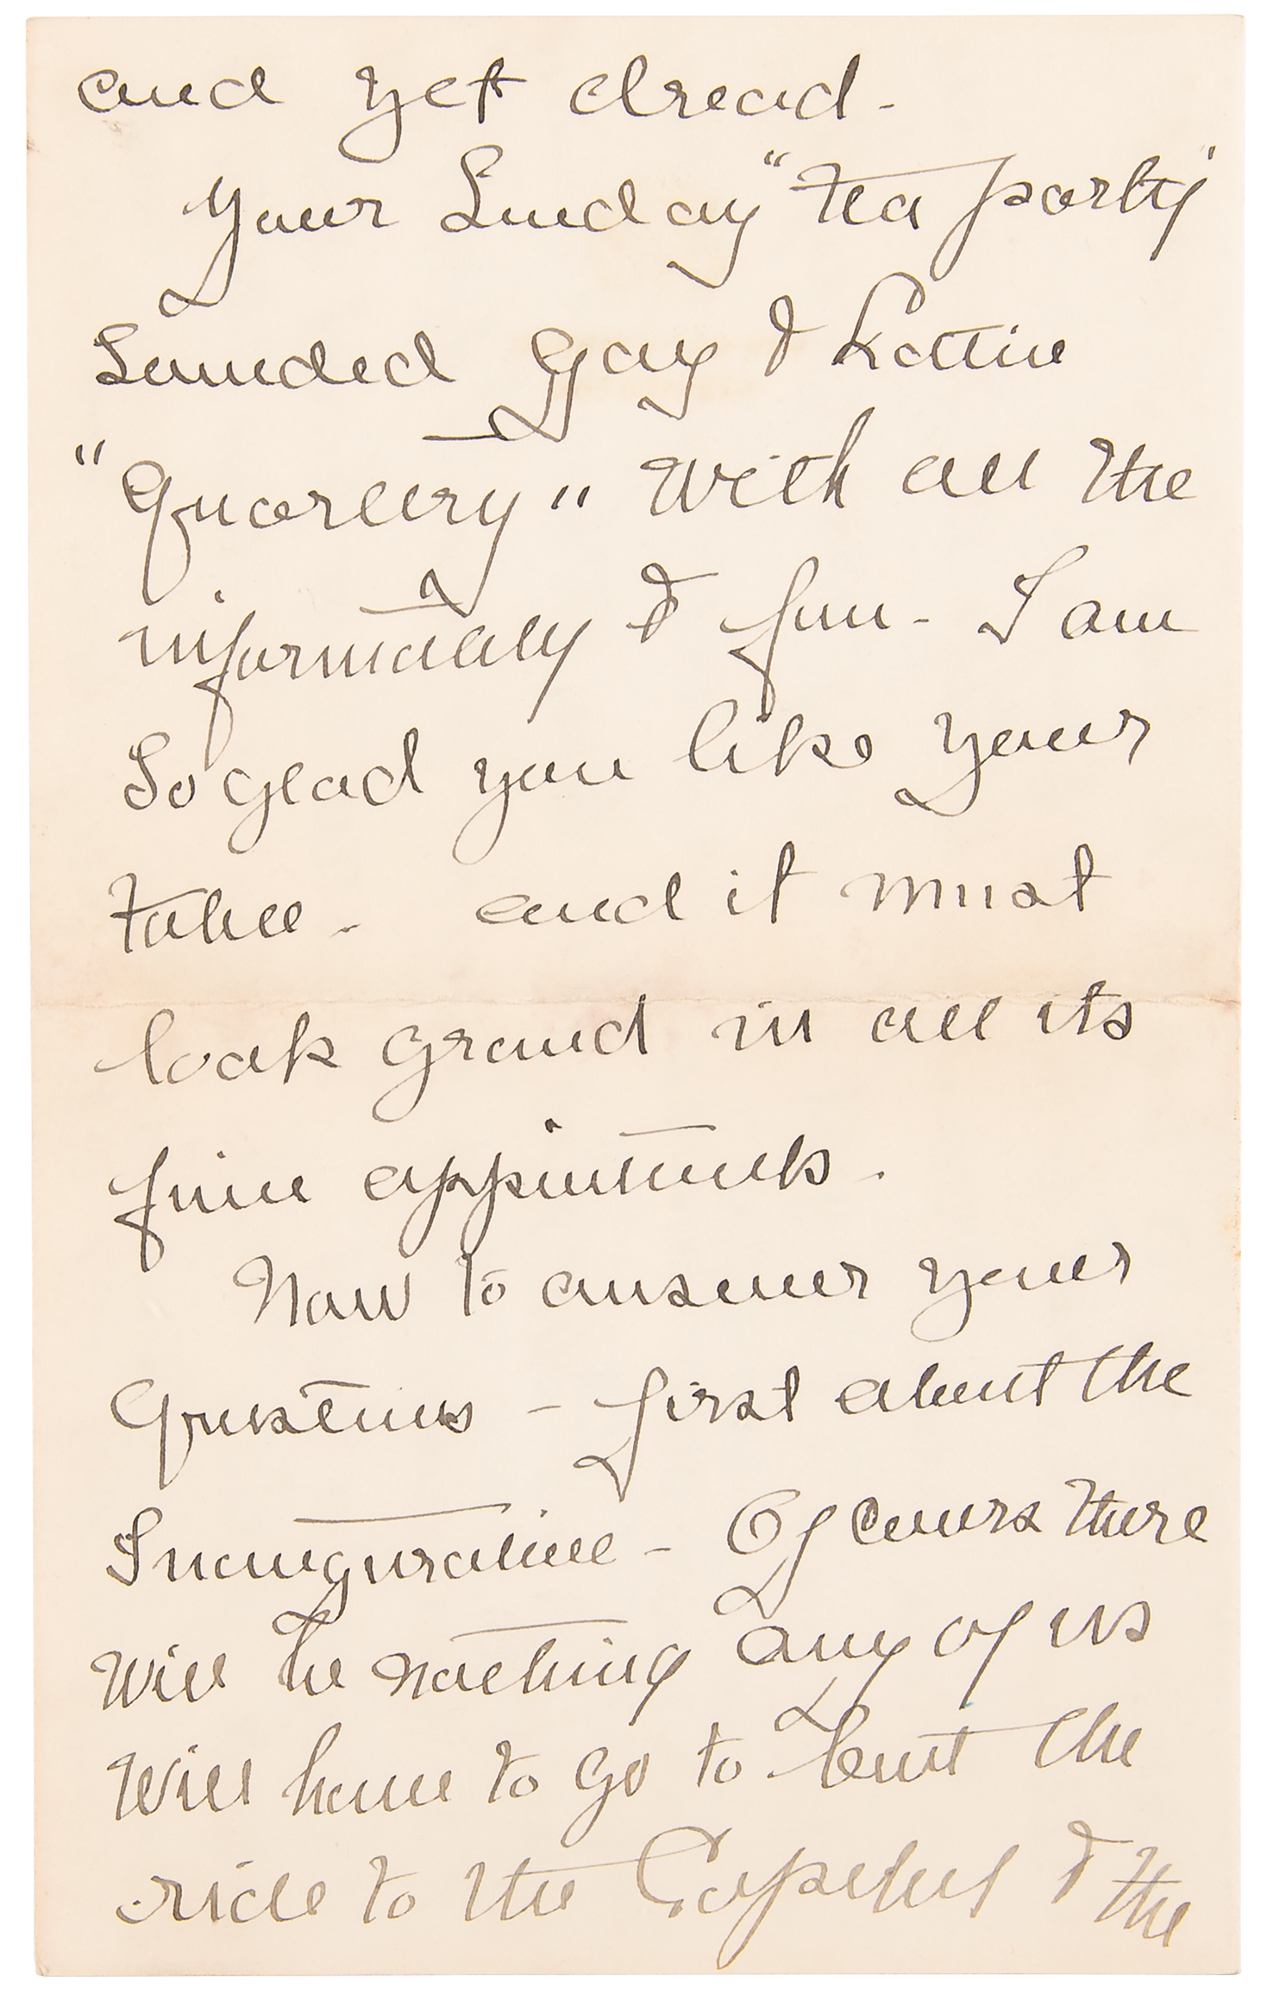 and yet dread -
Your Sunday "tea party"
sounded gay & Latin
"Quartery" with all the
informality & fun - I am
so glad you like your
table - and it must
look grand in all its
fine appointments.
Now to answer your
Questions - first about the
Inauguration - Of course there
will be nothing any of us
will have to go to but the
ride to the Capitol & the